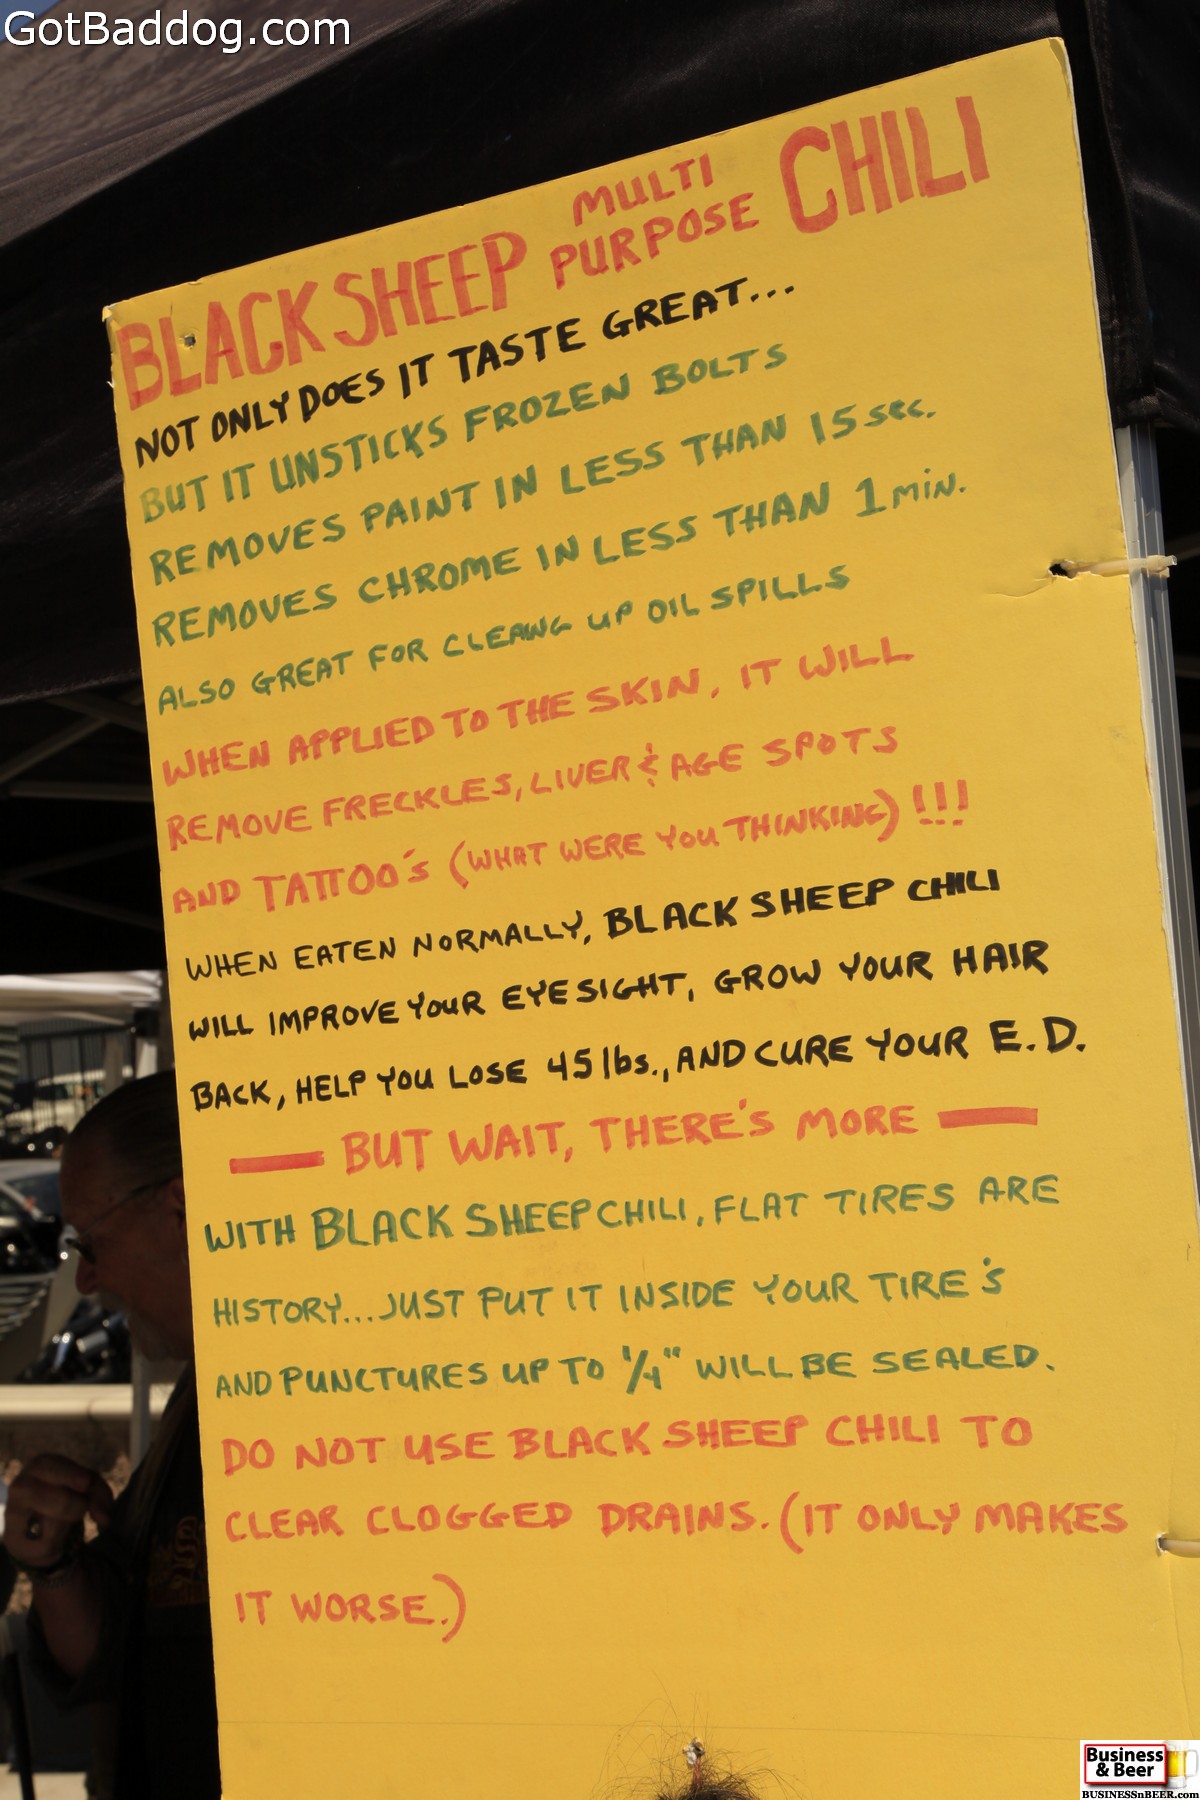 GotBaddog.com
BLACK SHEEP MULTI PURPOSE CHILI
NOT ONLY DOES IT TASTE GREAT...
BUT IT UNSTICKS FROZEN BOLTS
REMOVES PAINT IN LESS THAN 15 sec.
REMOVES CHROME IN LESS THAN 1 min.
ALSO GREAT FOR CLEANG UP OIL SPILLS
WHEN APPLIED TO THE SKIN, IT WILL
REMOVE FRECKLES, LIVER & AGE SPOTS
AND TATTOO'S (WHAT WERE YOU THINKING) !!!
WHEN EATEN NORMALLY, BLACK SHEEP CHILI
WILL IMPROVE YOUR EYESIGHT, GROW YOUR HAIR
BACK, HELP YOU LOSE 45 lbs., AND CURE YOUR E.D.
— BUT WAIT, THERE'S MORE —
WITH BLACK SHEEP CHILI, FLAT TIRES ARE
HISTORY...JUST PUT IT INSIDE YOUR TIRE'S
AND PUNCTURES UP TO 1/4" WILL BE SEALED.
DO NOT USE BLACK SHEEP CHILI TO
CLEAR CLOGGED DRAINS. (IT ONLY MAKES
IT WORSE.)
Business
& Beer
BUSINESSnBEER.com